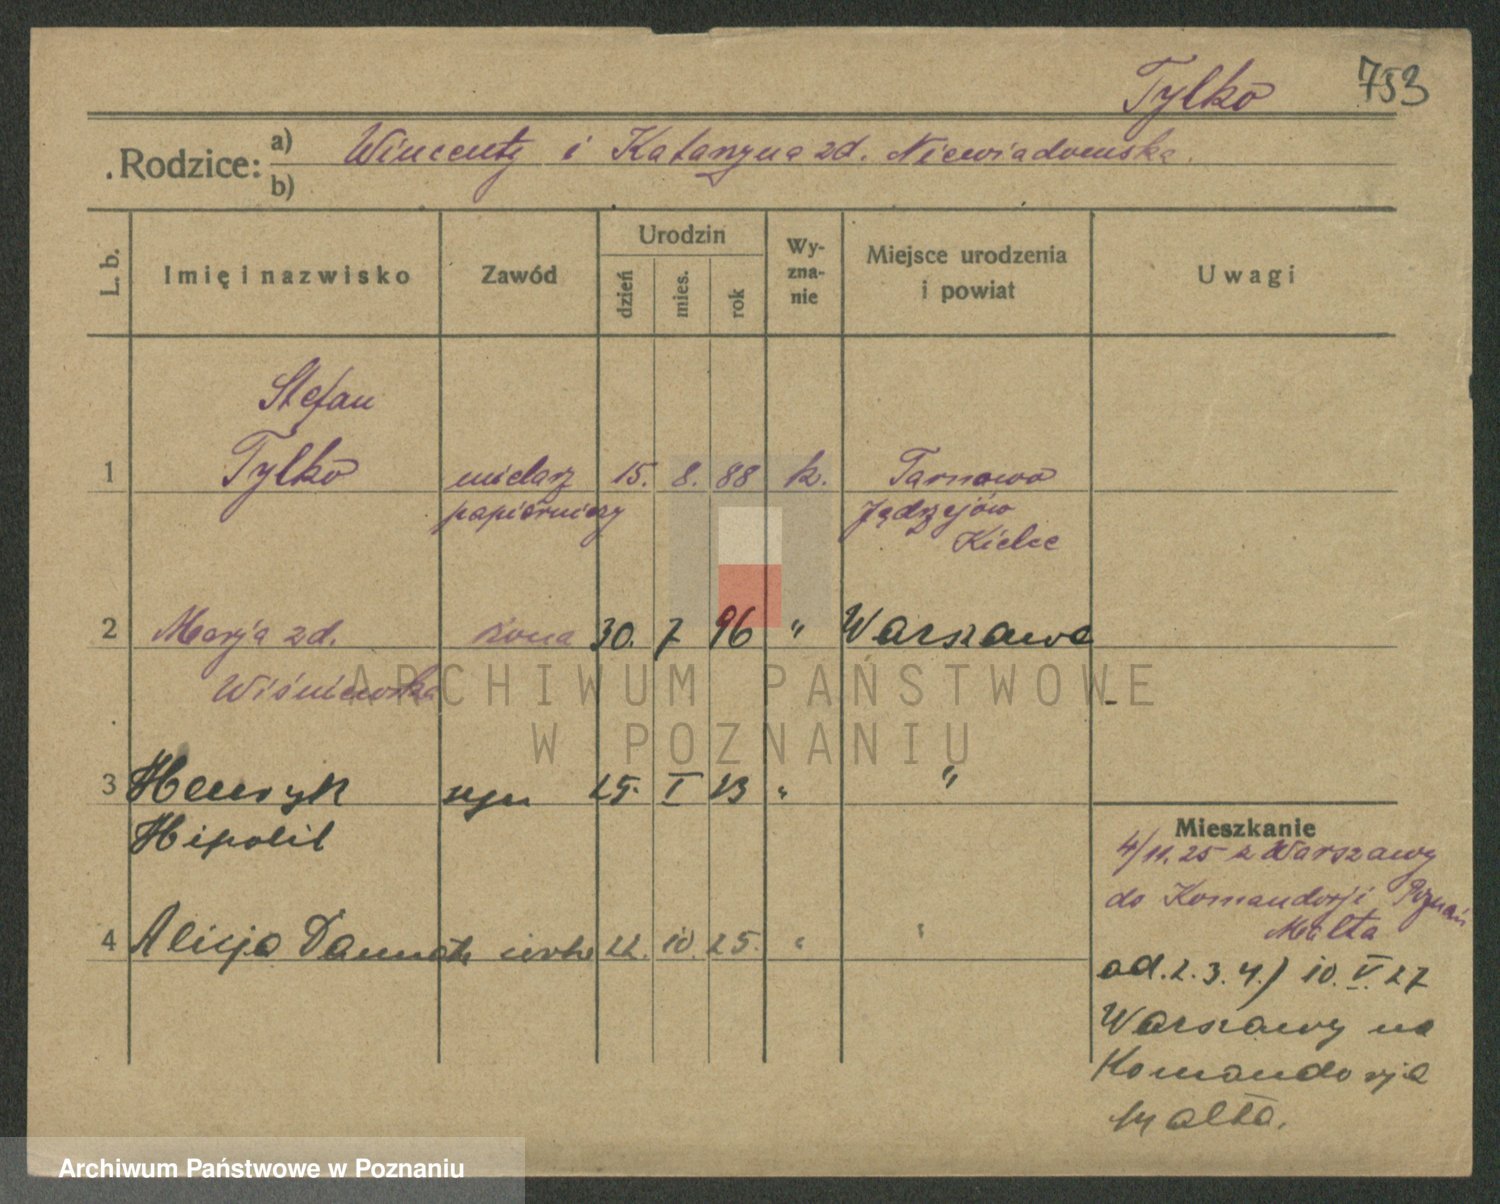 Tylko 753
Rodzice: a) Wincenty i Katarzyna zd. Niewiadomska.
b)
L. b. Imię i nazwisko Zawód Urodzin dzień mies. rok Wy- zna- nie Miejsce urodzenia i powiat Uwagi
Stefan
1 Tylko mielarz 15. 8. 88 k. Tarnowo
papierniczy Jędrzejów
Kielce
2 Marja zd. żona 30. 7 96 " Warszawa
Wiśniewska
ARCHIWUM PAŃSTWOWE
W POZNANIU
3 Henryk syn 25. I 23 " "
Hipolit
4 Alicja Danuta córka 22. 10. 25. " "
Mieszkanie
4/11.25 z Warszawy
do Komandorji Poznań
Malta
od. 2. 3. 4./ 10. V. 27
Warszawy na
Komandorja
Malta.
Archiwum Państwowe w Poznaniu